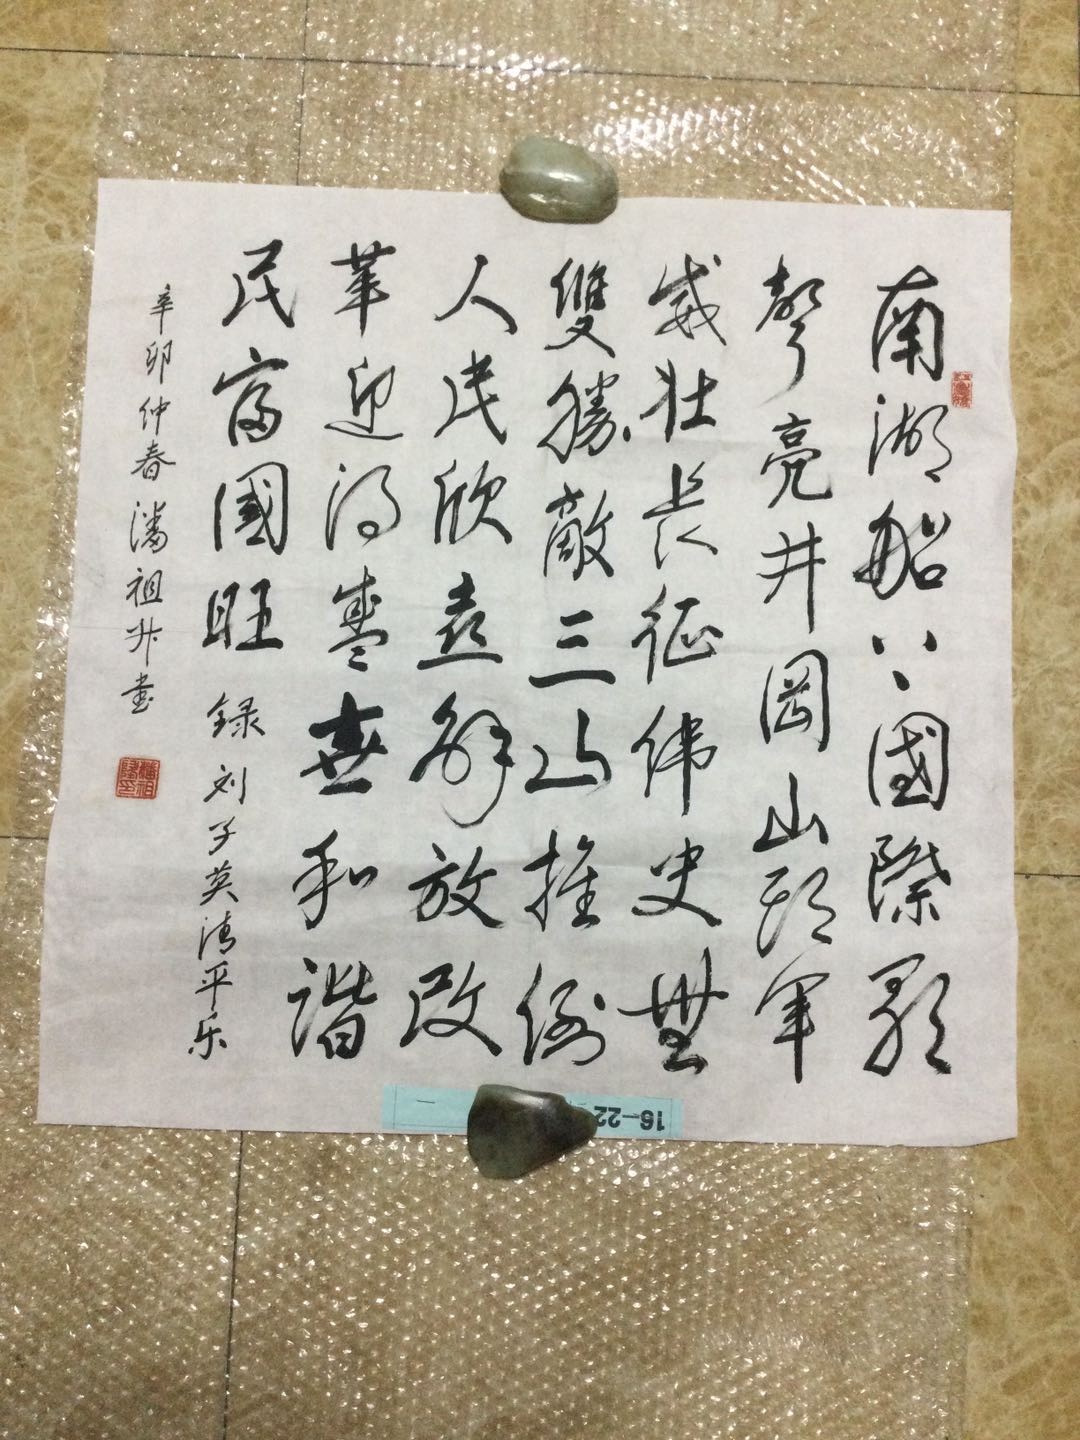 南湖船上國際歌
聲亮井岡山頭軍
威壯長征偉史無
雙勝敵三山推倒
人民欣喜解放改
革迎得盛世和諧
民富國旺 録刘子英清平乐
辛卯仲春潘祖升书
16-22